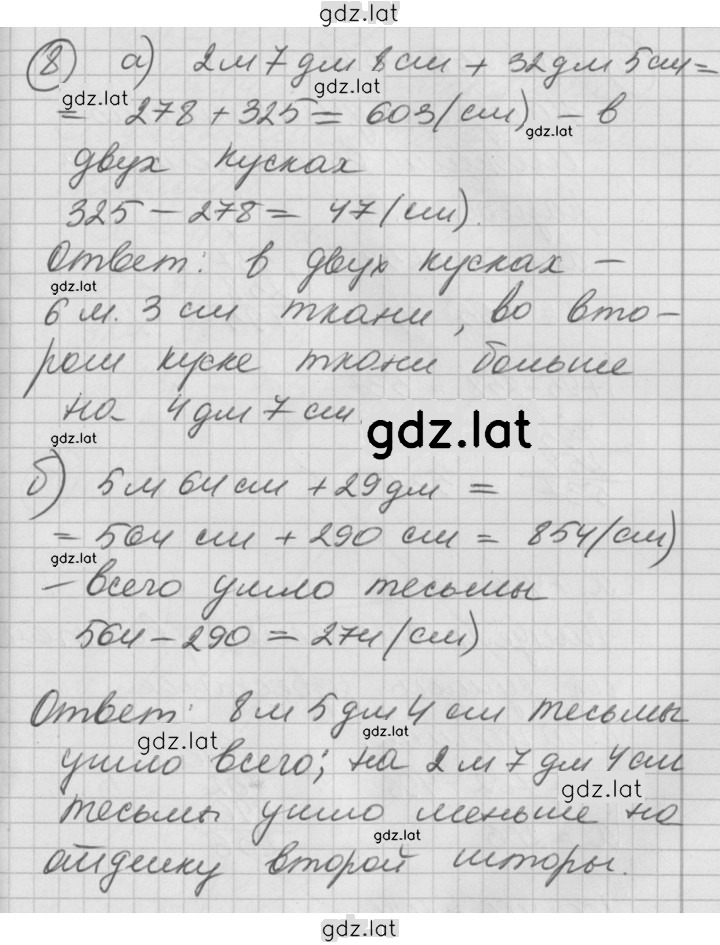 gdz.lat
8 а) 2 м 7 дм 8 см + 32 дм 5 см =
gdz.lat
= 278 + 325 = 603 (см) – в
gdz.lat
двух кусках
325 – 278 = 47 (см).
Ответ: в двух кусках –
gdz.lat
6 м. 3 см ткани, во вто-
ром куске ткани больше
на 4 дм 7 см
gdz.lat
gdz.lat
б) 5 м 64 см + 29 дм =
= 564 см + 290 см = 854 (см)
gdz.lat
– всего ушло тесьмы
564 – 290 = 274 (см)
Ответ: 8 м 5 дм 4 см тесьмы
gdz.lat
gdz.lat
ушло всего; на 2 м 7 дм 4 см
gdz.lat
тесьмы ушло меньше на
gdz.lat
отделку второй шторы.
gdz.lat